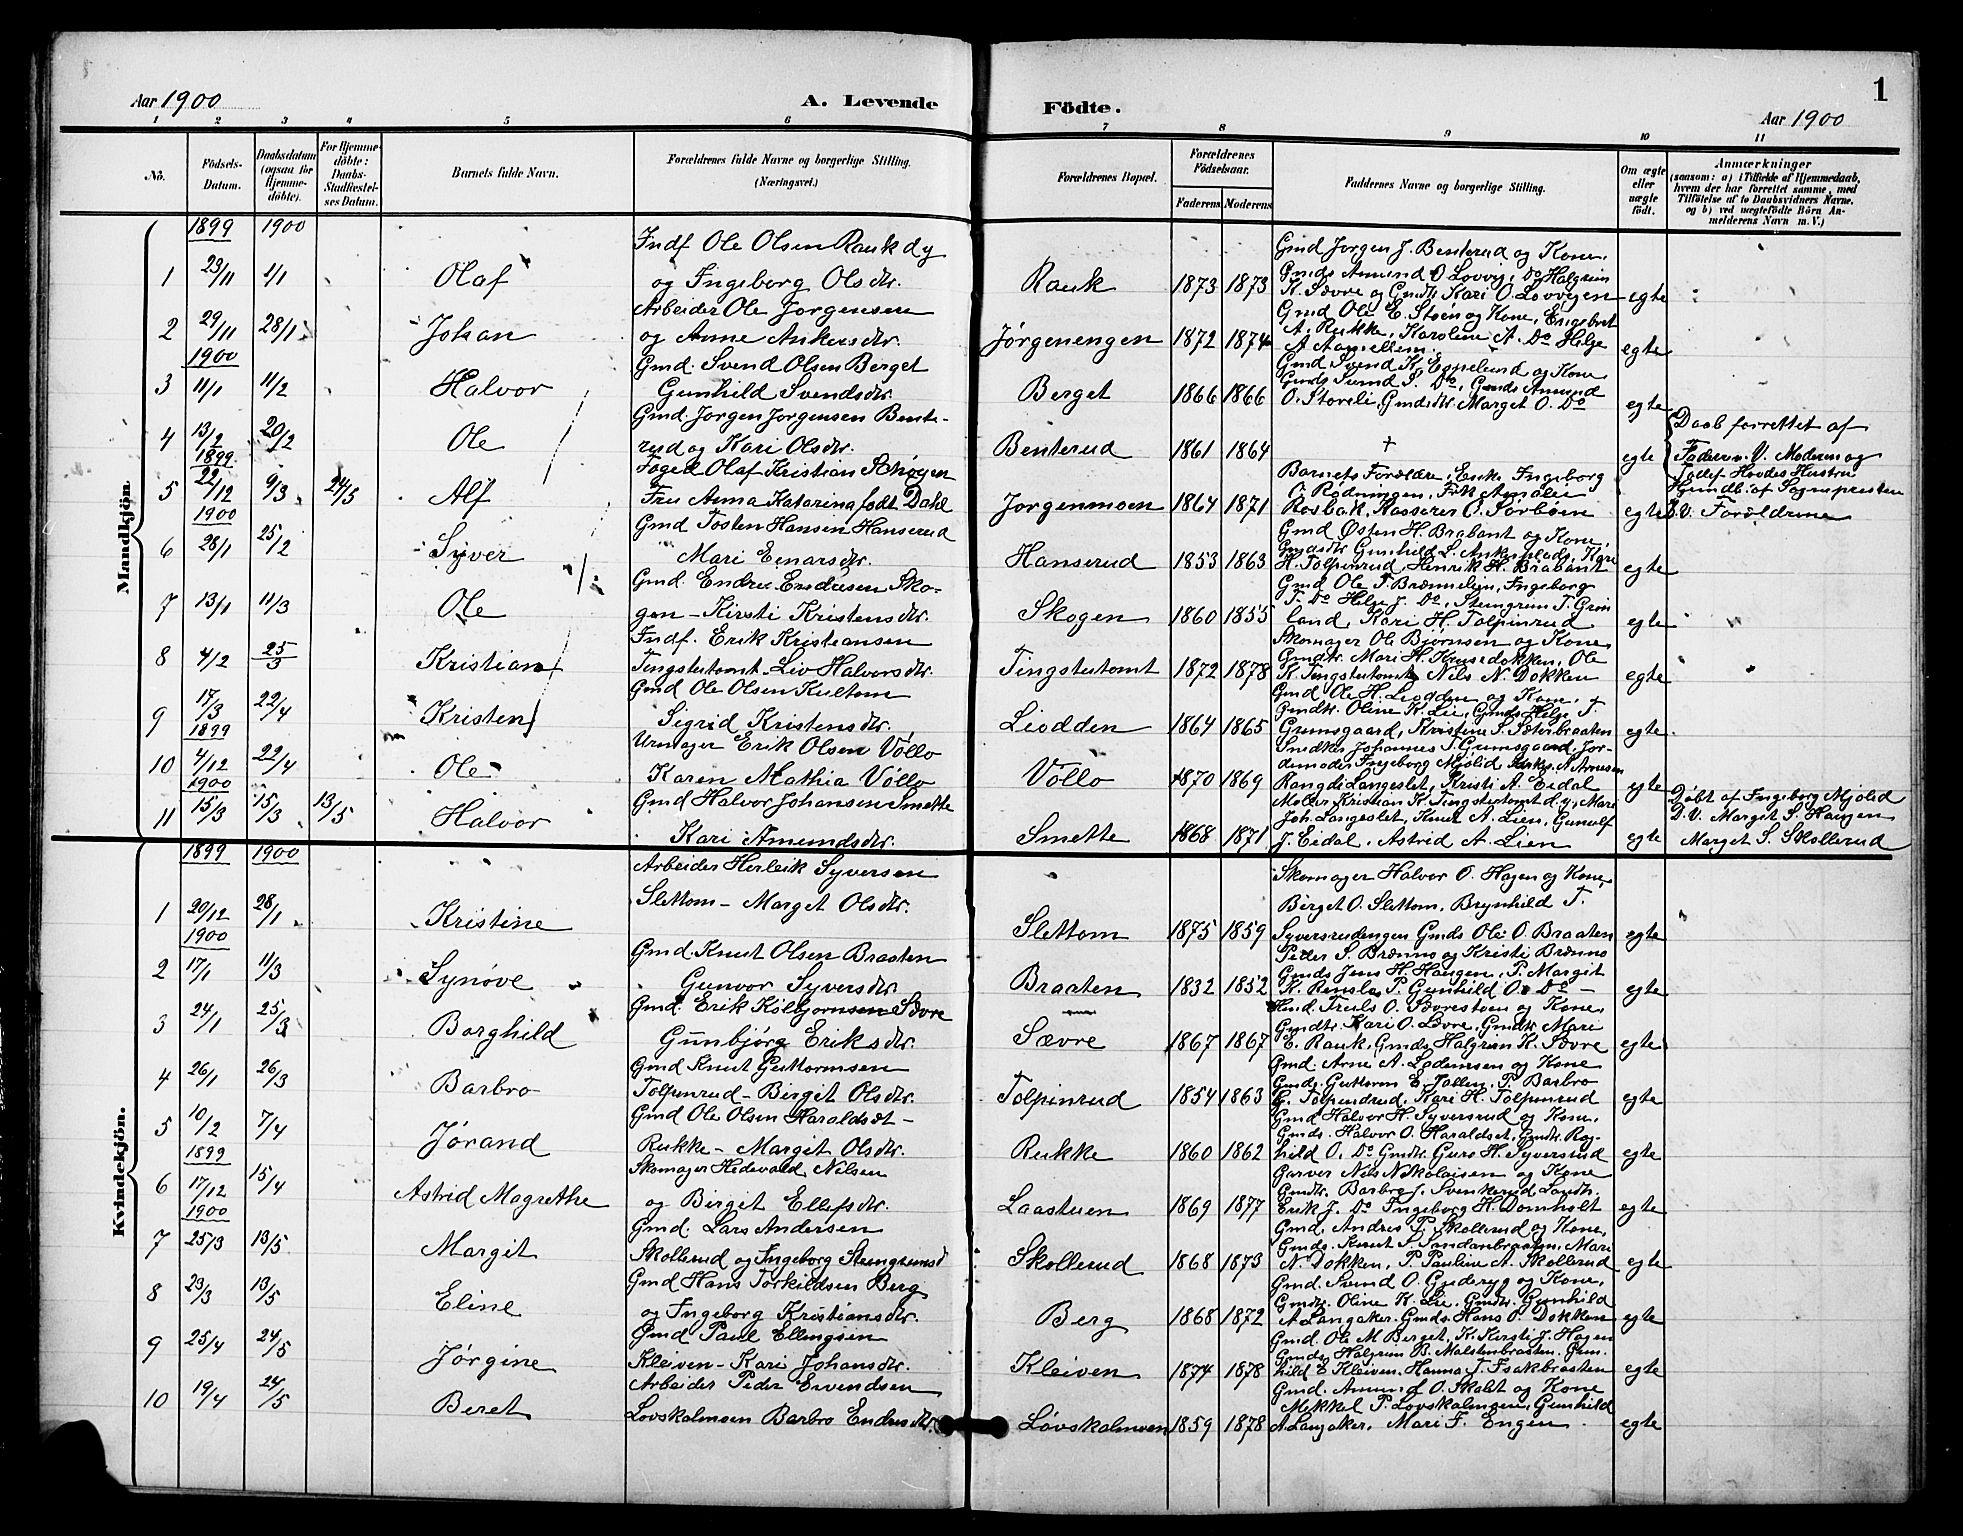 1
Aar 1900
A. Levende
Födte.
Aar 1900
1 2 3 4 5 6 7 8 9 10 11
No.
Födsels-
Datum.
Daabsdatum
(ogsaa for
Hjemme-
döbte).
For Hjemme-
döbte:
Daabs-
Stadfæstel-
ses Datum.
Barnets fulde Navn.
Forældrenes fulde Navne og borgerlige Stilling.
(Næringsvei.)
Forældrenes Bopæl.
Forældrenes
Födselsaar.
Faderens
Moderens
Faddernes Navne og borgerlige Stilling.
Om ægte
eller
uægte
födt.
Anmærkninger
(saasom: a) i Tilfælde af Hjemmedaab,
hvem der har forrettet samme, med
Tilföielse af to Daabsvidners Navne,
og b) ved uægtefödte Börn An-
melderens Navn m. V.)
Mandkjön.
1899 1900
Indf. Ole Olsen Rauk d y
Gmd Jorgen J. Benterud og Kone,
1 23/11 1/1 Olaf og Ingeborg Olsdtr. Rauk 1873 1873 Gmds Amund O. Lovvig, Do Halgrim
K. Sævre og Gmdtr Kari O. Lovvigen egte
Arbeider Ole Jorgensen
Gmd Ole E. Stoen og Kone, Engebret
2 29/11 28/1 Johan og Anne Ankersdtr. Jørgenengen 1872 1874 A. Rukke, Karoline A. Do Helge
egte
1900
Gmd. Svend Olsen Berget
Gmd Svend K. Eggelund og Kone
3 11/1 11/2 Halvor Gunhild Svendsdtr. Berget 1866 1866 Gmds Svend S. Do, Gmds Amund
O. Storeli, Gmdsdtr. Marget O. Do egte
Gmd. Jorgen Jorgensen Bente-
4 13/2 20/2 Ole rud og Kari Olsdtr. Benterud 1861 1864 + egte
Daab forrettet af
Faderen. V. Moderen og
Tollef Hovdes Hustru
1899
Foged Olaf Kristian
Barnets Forældre, Enke Ingeborg
5 22/12 9/3 24/5 Alf Fru Anna Katarina født Dahl Jorgenmoen 1864 1871 O. Rødningen, Frk Amalie
Rosbak, Kasserer O. egte
Hjmdb. af Sognepresten
D.V. Forældrene
1900
Gmd Tosten Hansen Hanserud
Gmd Østen H. Brabant og Kone,
6 28/1 25/2 Syver Mari Einarsdtr. Hanserud 1853 1863 Gmdsdtr Gunhild L. Ankerplads, Kari
H. Tolpinrud, Henrik H. Brabant egte
Gmd. Endre Endresen Sko-
Gmd Ole T. Brænnelien, Ingeborg
7 13/1 11/3 Ole gen - Kirsti Kristensdtr. Skogen 1860 1855 T. Do Helge J. Do, Stengrim T. Grim
land, Kari H. Tolpinrud egte
Indf. Erik Kristiansen
Skomager Ole Bjørnsen og Kone
8 4/2 25/3 Kristian Tingstutomt - Liv Halvorsdtr. Tingstutomt 1872 1878 Gmdtr. Mari H. Krusedokken, Ole
K. Tingstutomt, Nils N. Dokken egte
Gmd Ole Olsen
Gmd Ole H. Liodden og Kone,
9 17/3 22/4 Kristen Sigrid Kristensdtr. Liodden 1864 1865 Gmdtr. Oline K. Lie, Gmds Helge T.
Grimsgaard, Kristine S. Sæterbraaten egte
1899
Urmager Erik Olsen Vollo
Snedker Johannes S. Grimsgaard, Jor-
10 4/12 22/4 Ole Karen Mathia Vollo Vollo 1870 1869 demoder Ingeborg Mjølid
Rangdi Langeslet, Kristi A. Eidal egte
1900
Gmd Halvor Johansen Smette
Møller Kristian K. Tingstutomt d. y., Mari
11 15/3 15/3 13/5 Halvor Kari Amundsdtr. Smette 1868 1871 Joh. Langeslet, Knut A. Lien, Gunulf
J. Eidal, Astrid A. Lien egte
Døbt af Ingeborg Mjølid
D.V. Margit S. Haugen
Marget S. Skollerud
Kvindekjön.
1899 1900
Arbeider Herleik Syversen
Skomager Halvor O. Hagen og Kone,
1 20/12 28/1 Kristine Slettom - Marget Olsdtr. Slettom 1875 1859 Birget O. Slettom, Brynhild T.
Syversrudengen Gmds Ole O. Braaten egte
1900
Gmd. Knut Olsen Braaten
Peder S. Brænno og Kristi Brænno
2 17/1 11/3 Synøve Gunvor Syversdtr. Braaten 1832 1852 Gmds Jens H. Haugen, P. Margit
K. Rensla, P. Gunhild O. Do - egte
Gmd. Erik Kolbjornsen Sævre
Gmd. Truls O. Sævrestoen og Kone,
3 24/1 25/3 Borghild Gunbjørg Eriksdtr. Sævre 1867 1867 Gmdtr. Kari O. Sævre, Gmdtr Mari
E. Rauk, Gmds Halgrim K. Sævre egte
Gmd Knut Guttormsen
Gmd. Arne A. og Kone
4 26/1 26/3 Barbro Tolpinrud - Birgit Olsdtr. Tolpinrud 1854 1863 Gmds. Guttorm E. P. Barbro
G. Tolpinrud, Kari H. Tolpinrud egte
Gmd Ole Olsen Haraldset -
Gmd Halvor H. Syversrud og Kone,
5 10/2 7/4 Jørand Rukke - Margit Olsdtr. Rukke 1860 1862 Gmds. Halvor O. Haraldset, Gmdtr. Rag-
hild O. Do Gmdtr. Guro H. Syversrud egte
1899
Skomager Hedevald Nilsen
Garver Nils Nikolaisen og Kone
6 17/12 15/4 Astrid Magrethe og Birgit Ellefsdtr. Laastuen 1869 1877 Gmdtr. Barbro J. Svenkerud
Erik J. Do Ingeborg H. Domholt egte
1900
Gmd. Lars Andersen
Gmd. Andres P. Skollerud og Kone,
7 25/3 13/5 Margit Skollerud og Ingeborg Skollerud 1868 1873 Gmds. Knut S. Sandanbraaten, Mari
N. Dokken, P. Pauline A. Skollerud egte
Gmd Hans Torkildsen Berg
Gmd. Svend O. og Kone,
8 23/3 13/5 Eline og Ingeborg Kristiansdtr. Berg 1868 1872 Gmdtr. Oline K. Lie, Gmdtr. Gunhild
A Langaker, Gmds. Hans O. Dokken egte
Gmd Paul Ellingsen
Gmd. Ole M. Berget, K. Kirsti J. Hagen
9 25/4 24/5 Jørgine Kleiven - Kari Johansdtr. Kleiven 1874 1878 Gmds Halgrim B. Malstenbraaten. Gun-
hild E Kleiven, Hanna T. Isakbraaten egte
Arbeider Peder Evendsen
Gmd. Amund O. Skalst og Kone
10 19/4 24/5 Beret Lovskalmoen Barbro Endresdtr. Løvskalmoen 1859 1878 Mekkel P. Lovskalmoen, Gunhild
A Langaker, Mari F. Engen egte